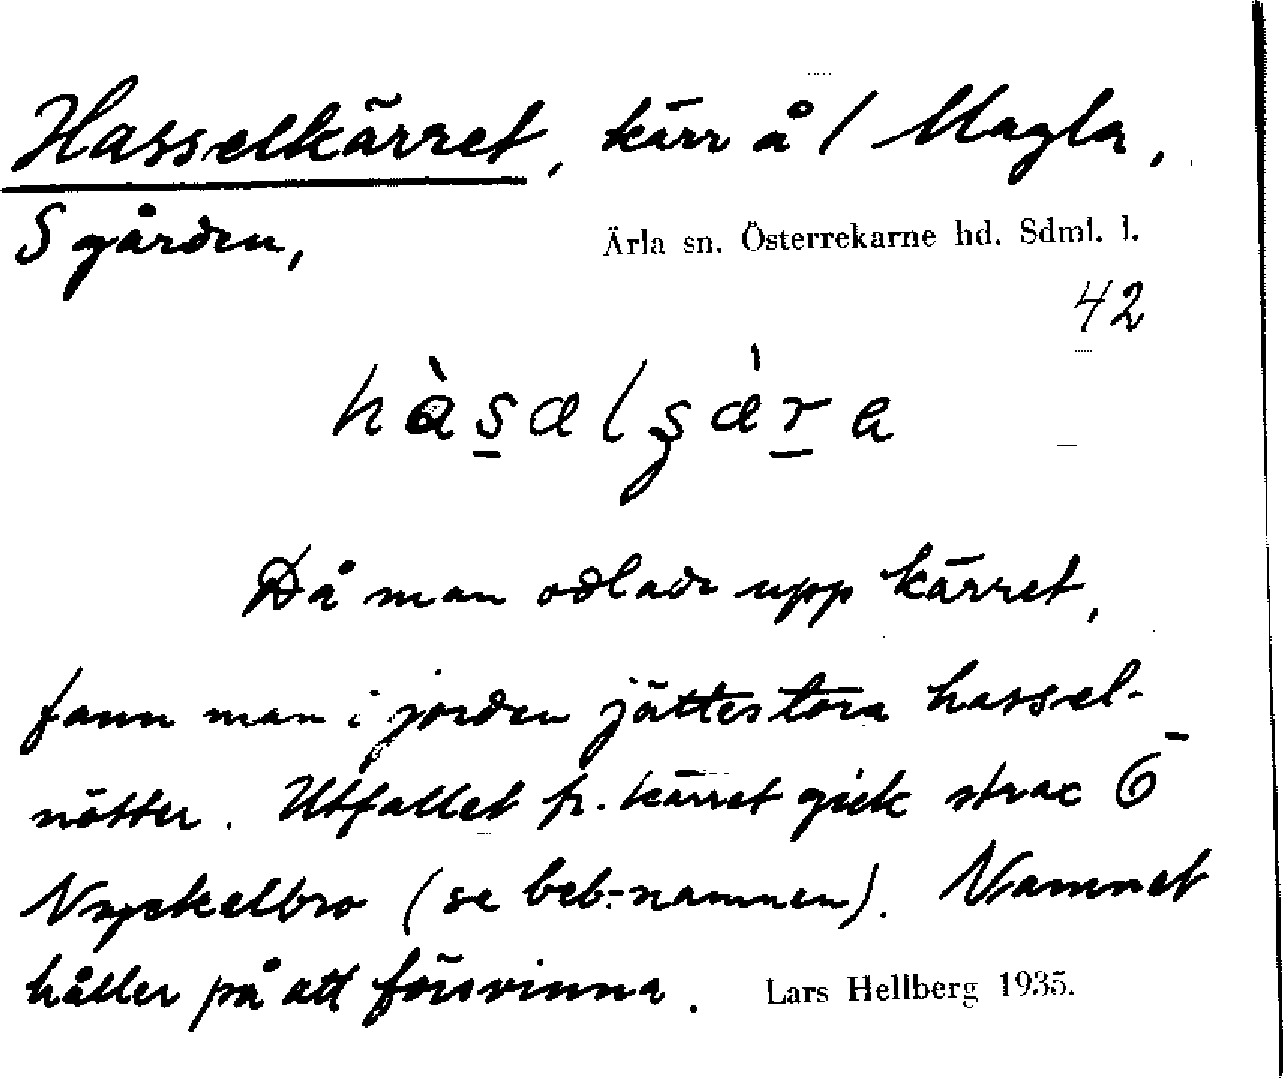 Hasselkärret, kärr å / Magla,
S gården,
Ärla sn. Österrekarne hd. Sdml. l.
42
hàsalʂæ̀ra
Då man odlade upp kärret,
fann man i jorden jättestora hassel-
nötter. Utfallet fr. kärret gick strax Ö
Nyckelbro (se beb.-namnen). Namnet
håller på att försvinna. Lars Hellberg 1935.